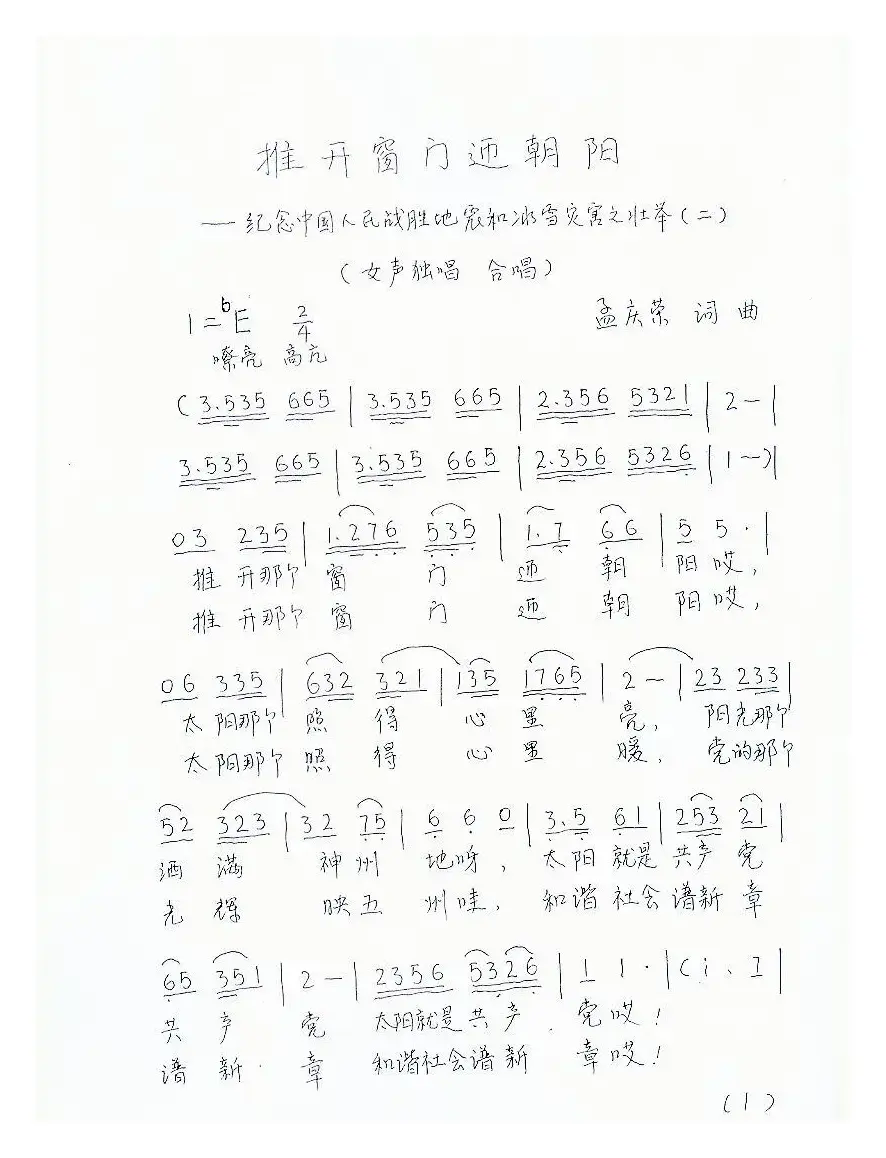 推开窗门迊朝阳
——纪念中国人民战胜地震和冰雪灾害之壮举(二)
(女声独唱 合唱)
1=♭E 2/4 孟庆荣 词曲
嘹亮 高亢
(3.535 665 | 3.535 665 | 2.356 5321 | 2 — |
3.535 665 | 3.535 665 | 2.356 5326 | 1 —)|
03 235 | 1.276 535 | 1.7 66 | 5 5. |
推 开那个 窗 门 迊 朝 阳 哎,
推 开那个 窗 门 迊 朝 阳 哎,
06 335 | 632 321 | 135 1765 | 2 — | 23 233 |
太 阳那个 照 得 心 里 亮, 阳光那个
太 阳那个 照 得 心 里 暖, 党的那个
52 323 | 32 75 | 6 6 0 | 3.5 61 | 253 21 |
洒 满 神州 地呀, 太阳 就是 共产 党
光 辉 映五 州哇, 和谐 社会 谱新 章
65 351 | 2 — | 2356 5326 | 1 1. | (i、1 |
共 产 党 太阳就是 共产 党哎!
谱 新 章 和谐社会 谱新 章哎!
(1)